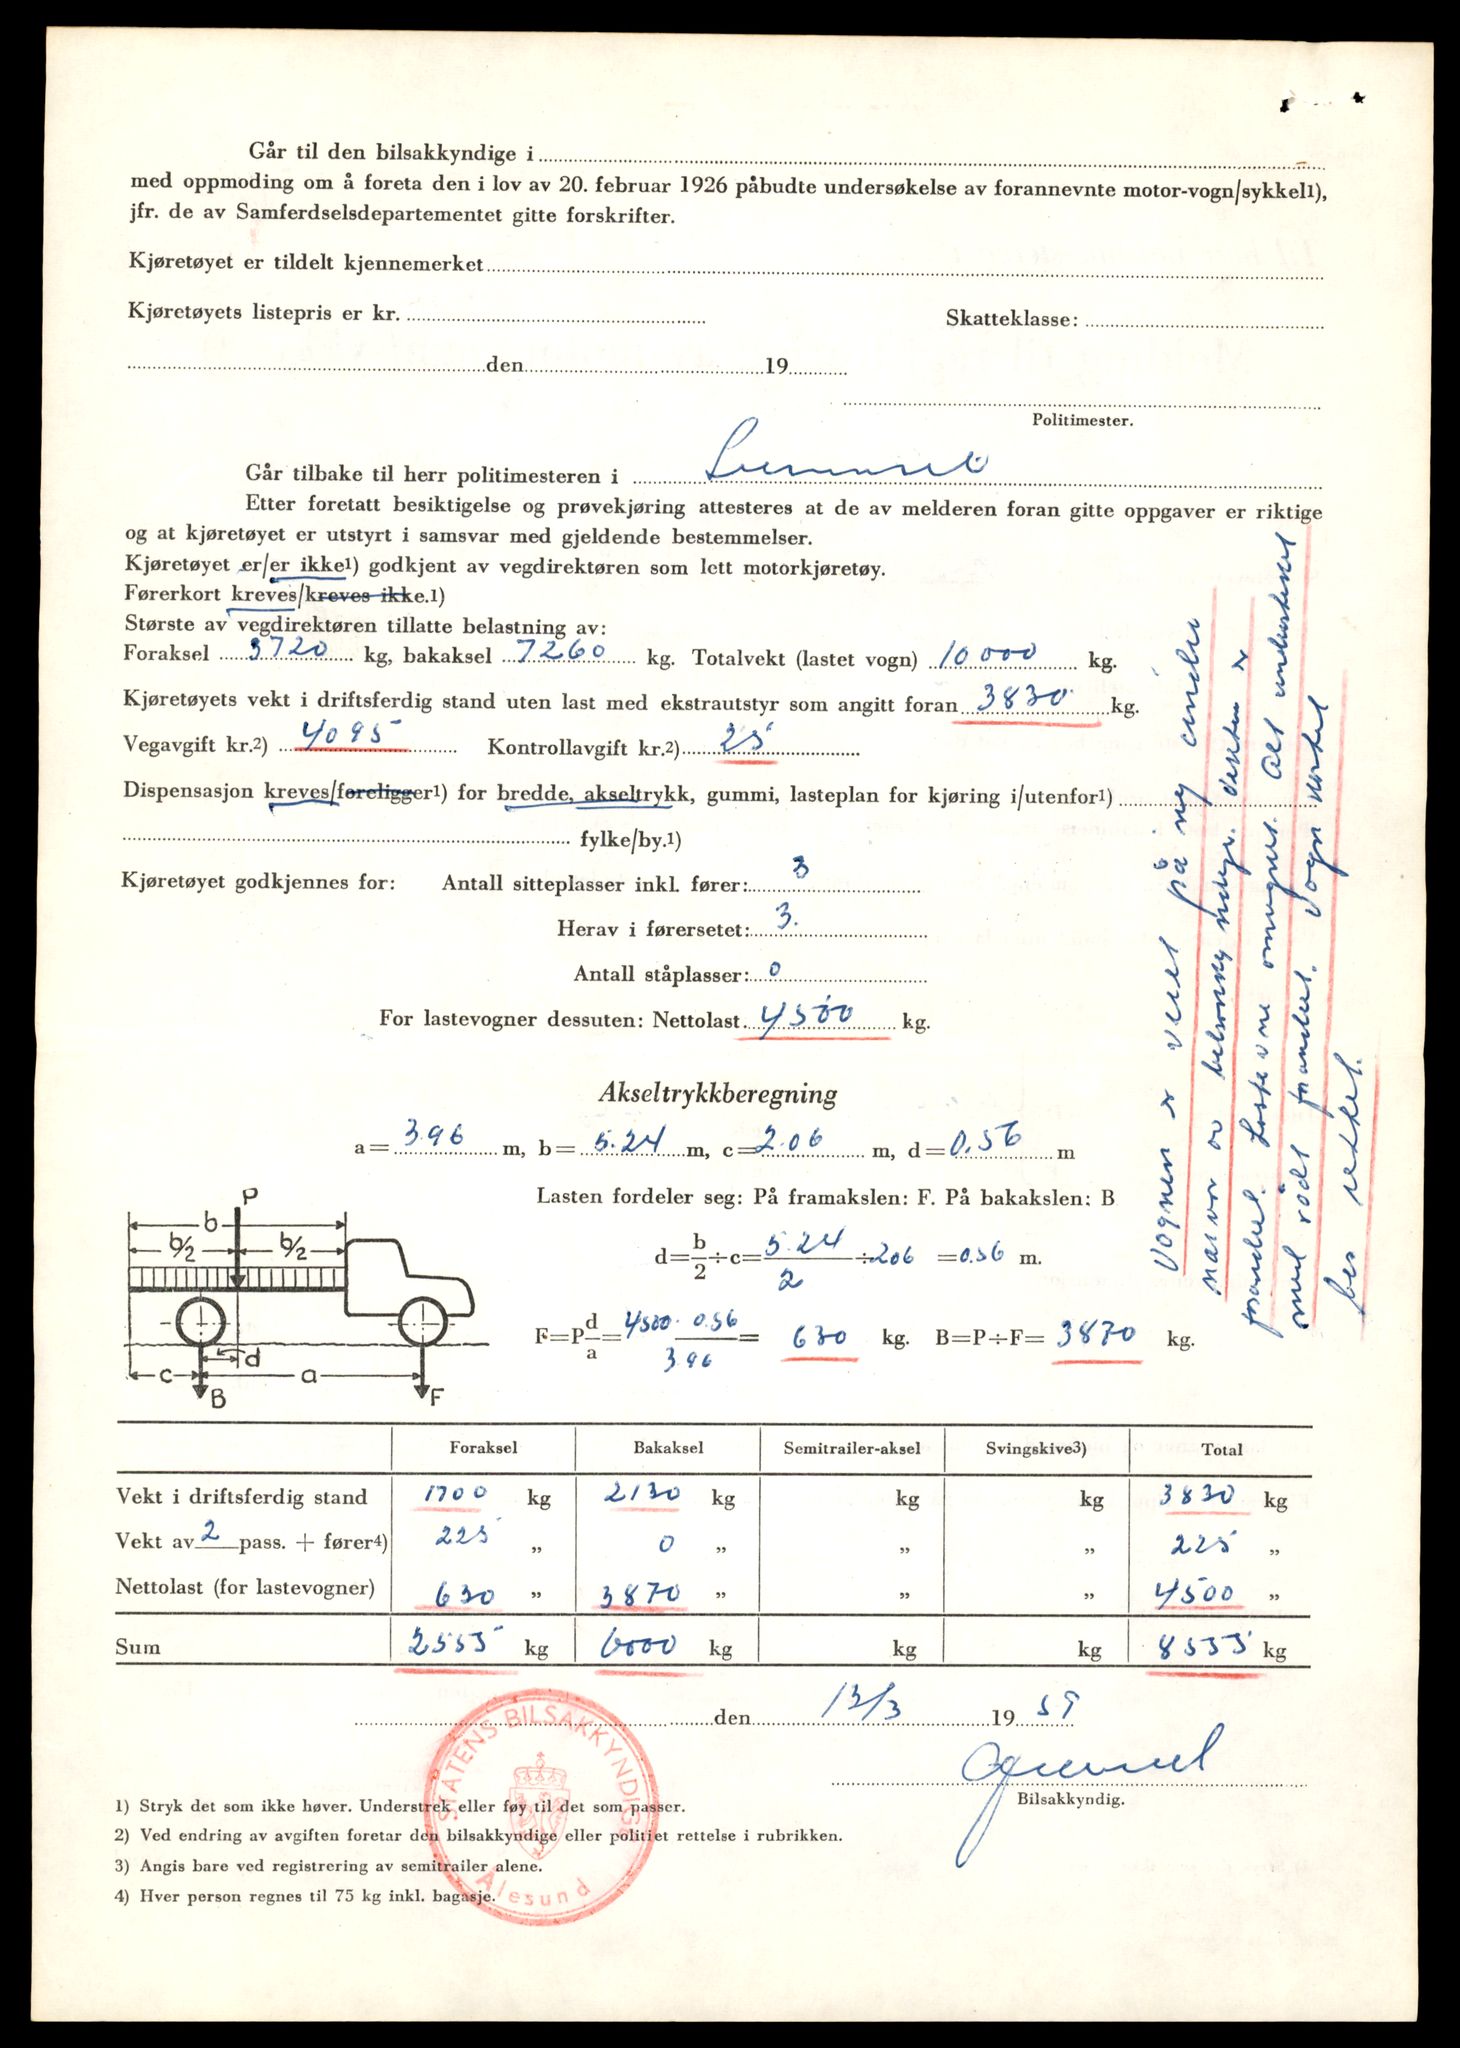 Går til den bilsakkyndige i
med oppmoding om å foreta den i lov av 20. februar 1926 påbudte undersøkelse av forannevnte motor-vogn/sykkel1),
jfr. de av Samferdselsdepartementet gitte forskrifter.
Kjøretøyet er tildelt kjennemerket
Kjøretøyets listepris er kr. Skatteklasse:
den 19
Politimester.
Går tilbake til herr politimesteren i
Etter foretatt besiktigelse og prøvekjøring attesteres at de av melderen foran gitte oppgaver er riktige
og at kjøretøyet er utstyrt i samsvar med gjeldende bestemmelser.
Kjøretøyet er/er ikke1) godkjent av vegdirektøren som lett motorkjøretøy.
Førerkort kreves/kreves ikke.1)
Største av vegdirektøren tillatte belastning av:
Foraksel 3720 kg, bakaksel 7260 kg. Totalvekt (lastet vogn) 10 000 kg.
Kjøretøyets vekt i driftsferdig stand uten last med ekstrautstyr som angitt foran 3830 kg.
Vegavgift kr.2) 4095 Kontrollavgift kr.2) 25
Dispensasjon kreves/foreligger1) for bredde, akseltrykk, gummi, lasteplan for kjøring i/utenfor1)
fylke/by.1)
Kjøretøyet godkjennes for: Antall sitteplasser inkl. fører: 3
Herav i førersetet: 3.
Antall ståplasser: 0
For lastevogner dessuten: Nettolast 4500 kg.
Akseltrykkberegning
a= 3.96 m, b= 5.24 m, c= 2.06 m, d= 0.56 m
Lasten fordeler seg: På framakslen: F. På bakakslen: B
d= b/2 ÷ c= 5.24/2 ÷ 206 = 0.56 m.
F=P d/a = 4500. 0.56/3.96 = 630 kg. B=P÷F= 3870 kg.
P
b
b/2 b/2
d
c a
B F
Foraksel Bakaksel Semitrailer-aksel Svingskive3) Total
Vekt i driftsferdig stand 1700 kg 2130 kg kg kg 3830 kg
Vekt av 2 pass. + fører4) 225 „ 0 „ „ „ 225 „
Nettolast (for lastevogner) 630 „ 3870 „ „ „ 4500 „
Sum 2555 kg 6000 kg kg kg 8555 kg
den 13/3 19 59
Bilsakkyndig.
STATENS BILSAKKYNDIGE
Ålesund
1) Stryk det som ikke høver. Understrek eller føy til det som passer.
2) Ved endring av avgiften foretar den bilsakkyndige eller politiet rettelse i rubrikken.
3) Angis bare ved registrering av semitrailer alene.
4) Hver person regnes til 75 kg inkl. bagasje.
Vognen er veiet på ny
forandret. Alt understreket
med rødt forandret. Vogn
bes rettet.